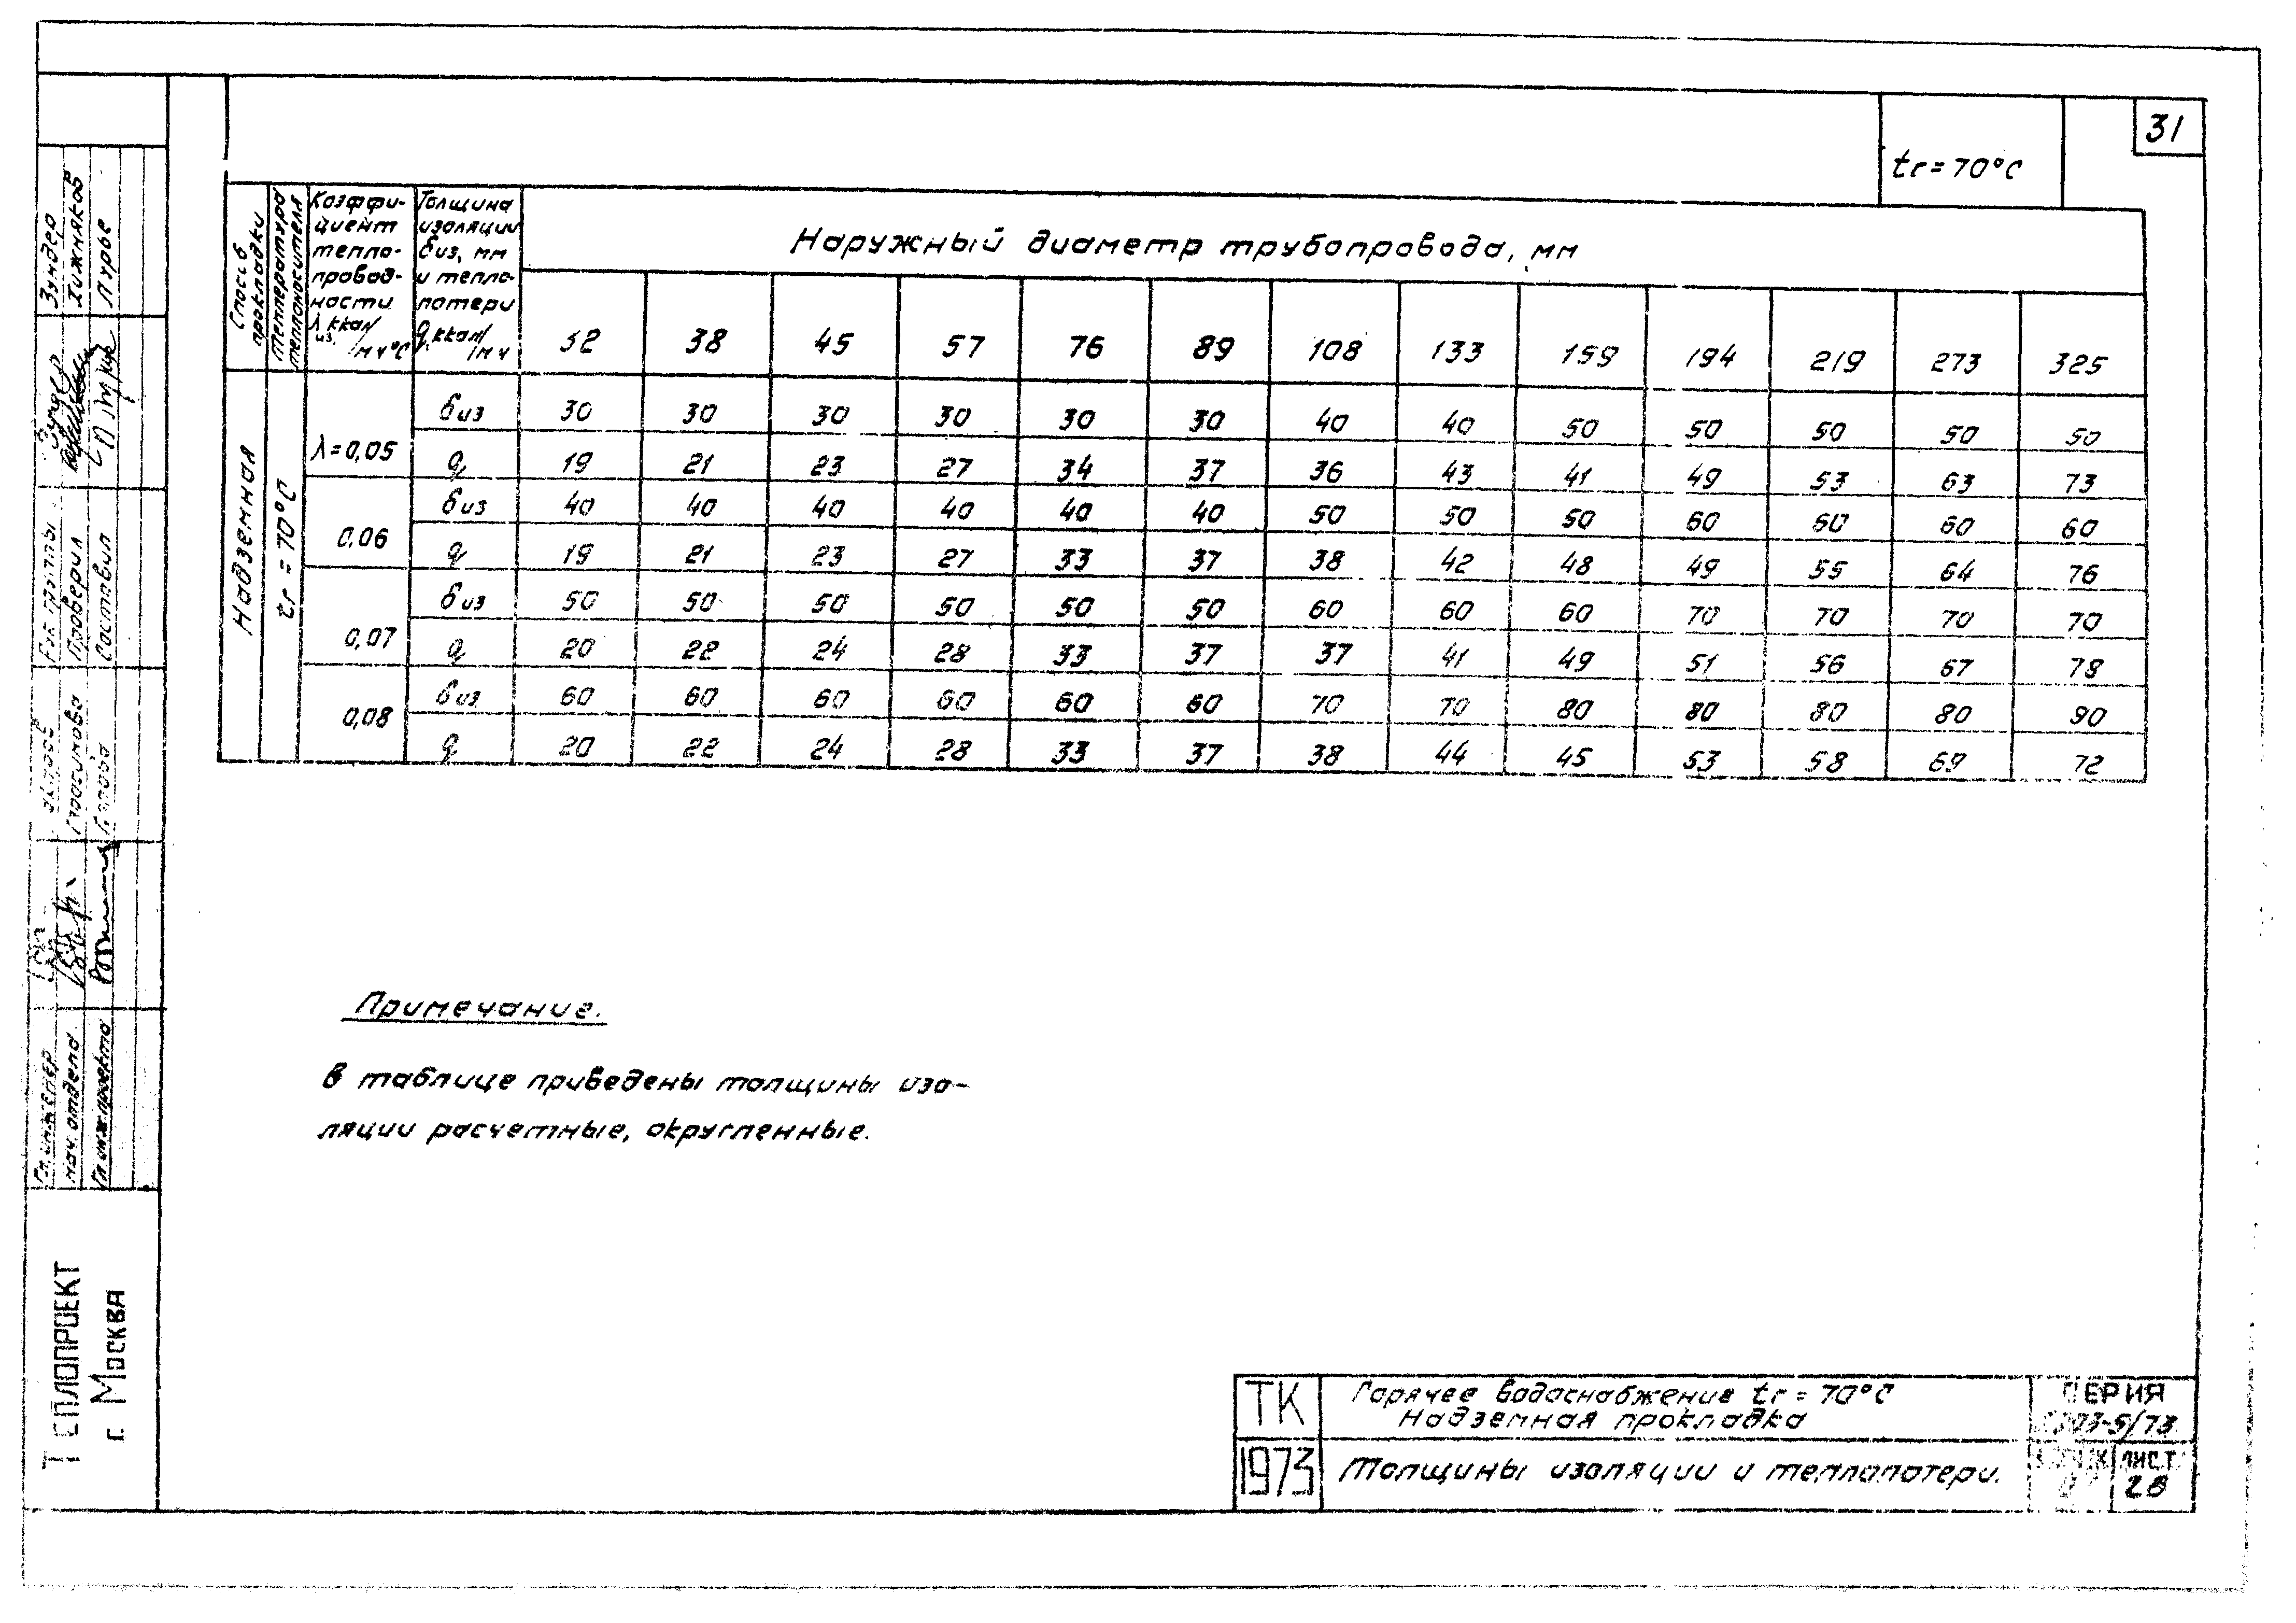 31
tг = 70°С
Способ прокладки
Температура теплоносителя
Коэффи-
циент
тепло-
провод-
ности
λ из. ккал/м ч °С
Толщина
изоляции
δ из, мм
и тепло-
потери
q, ккал/м ч
Наружный диаметр трубопровода, мм
32 38 45 57 76 89 108 133 159 194 219 273 325
Надземная
tг = 70°С
λ = 0,05
δ из 30 30 30 30 30 30 40 40 50 50 50 50 50
q 19 21 23 27 34 37 36 43 41 49 53 63 73
0,06
δ из 40 40 40 40 40 40 50 50 50 60 60 60 60
q 19 21 23 27 33 37 38 42 48 49 55 64 76
0,07
δ из 50 50 50 50 50 50 60 60 60 70 70 70 70
q 20 22 24 28 33 37 37 41 49 51 56 67 78
0,08
δ из 60 60 60 60 60 60 70 70 80 80 80 80 90
q 20 22 24 28 33 37 38 44 45 53 58 69 72
Примечание.
В таблице приведены толщины изо-
ляции расчетные, округленные.
Зундер
Хижняков
Лурье
Рук. группы
Проверил
Составил
Герасимова
Гл. инженер
Нач. отдела
Гл. инж. проекта
Теплопроект
г. Москва
ТК
1973
Горячее водоснабжение tг = 70°С
Надземная прокладка
Толщины изоляции и теплопотери.
СЕРИЯ
ЛИСТ
28